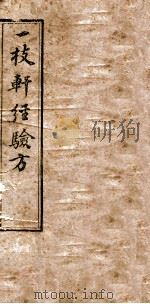 一枝軒經驗方
mtoou.info